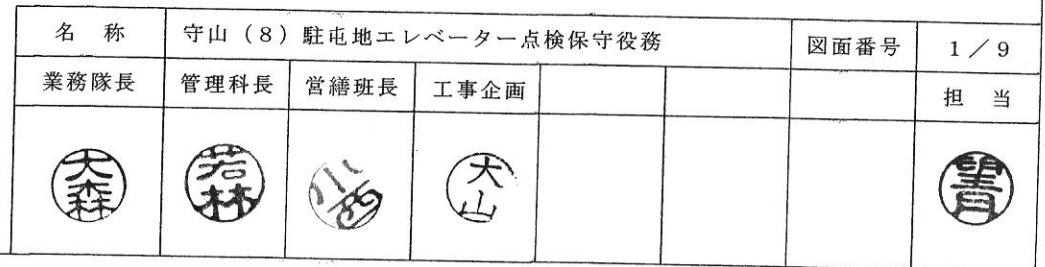 名称 守山（8）駐屯地エレベーター点検保守役務 図面番号 1／9
業務隊長 管理科長 営繕班長 工事企画 担当
大森 若林 大山